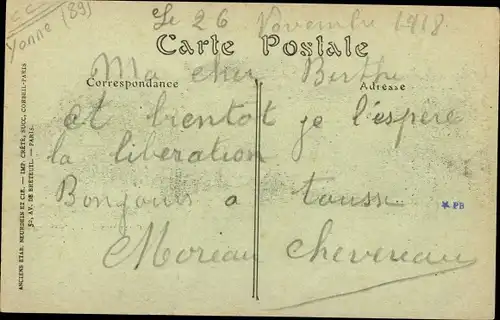 CC
Yonne (89)
Le 26 Novembre 1918
Carte Postale
Correspondance
Adresse
Ma cher Berthe
et bientot je l'espère
la liberation
Bonjours a tousse
Moreau Chevereau
ANCIENS ETAB. NEURDEIN ET CIE. — IMP. CRÉTÉ, SUCC. CORBEIL-PARIS
52, AV. DE BRETEUIL. — PARIS.
* PB